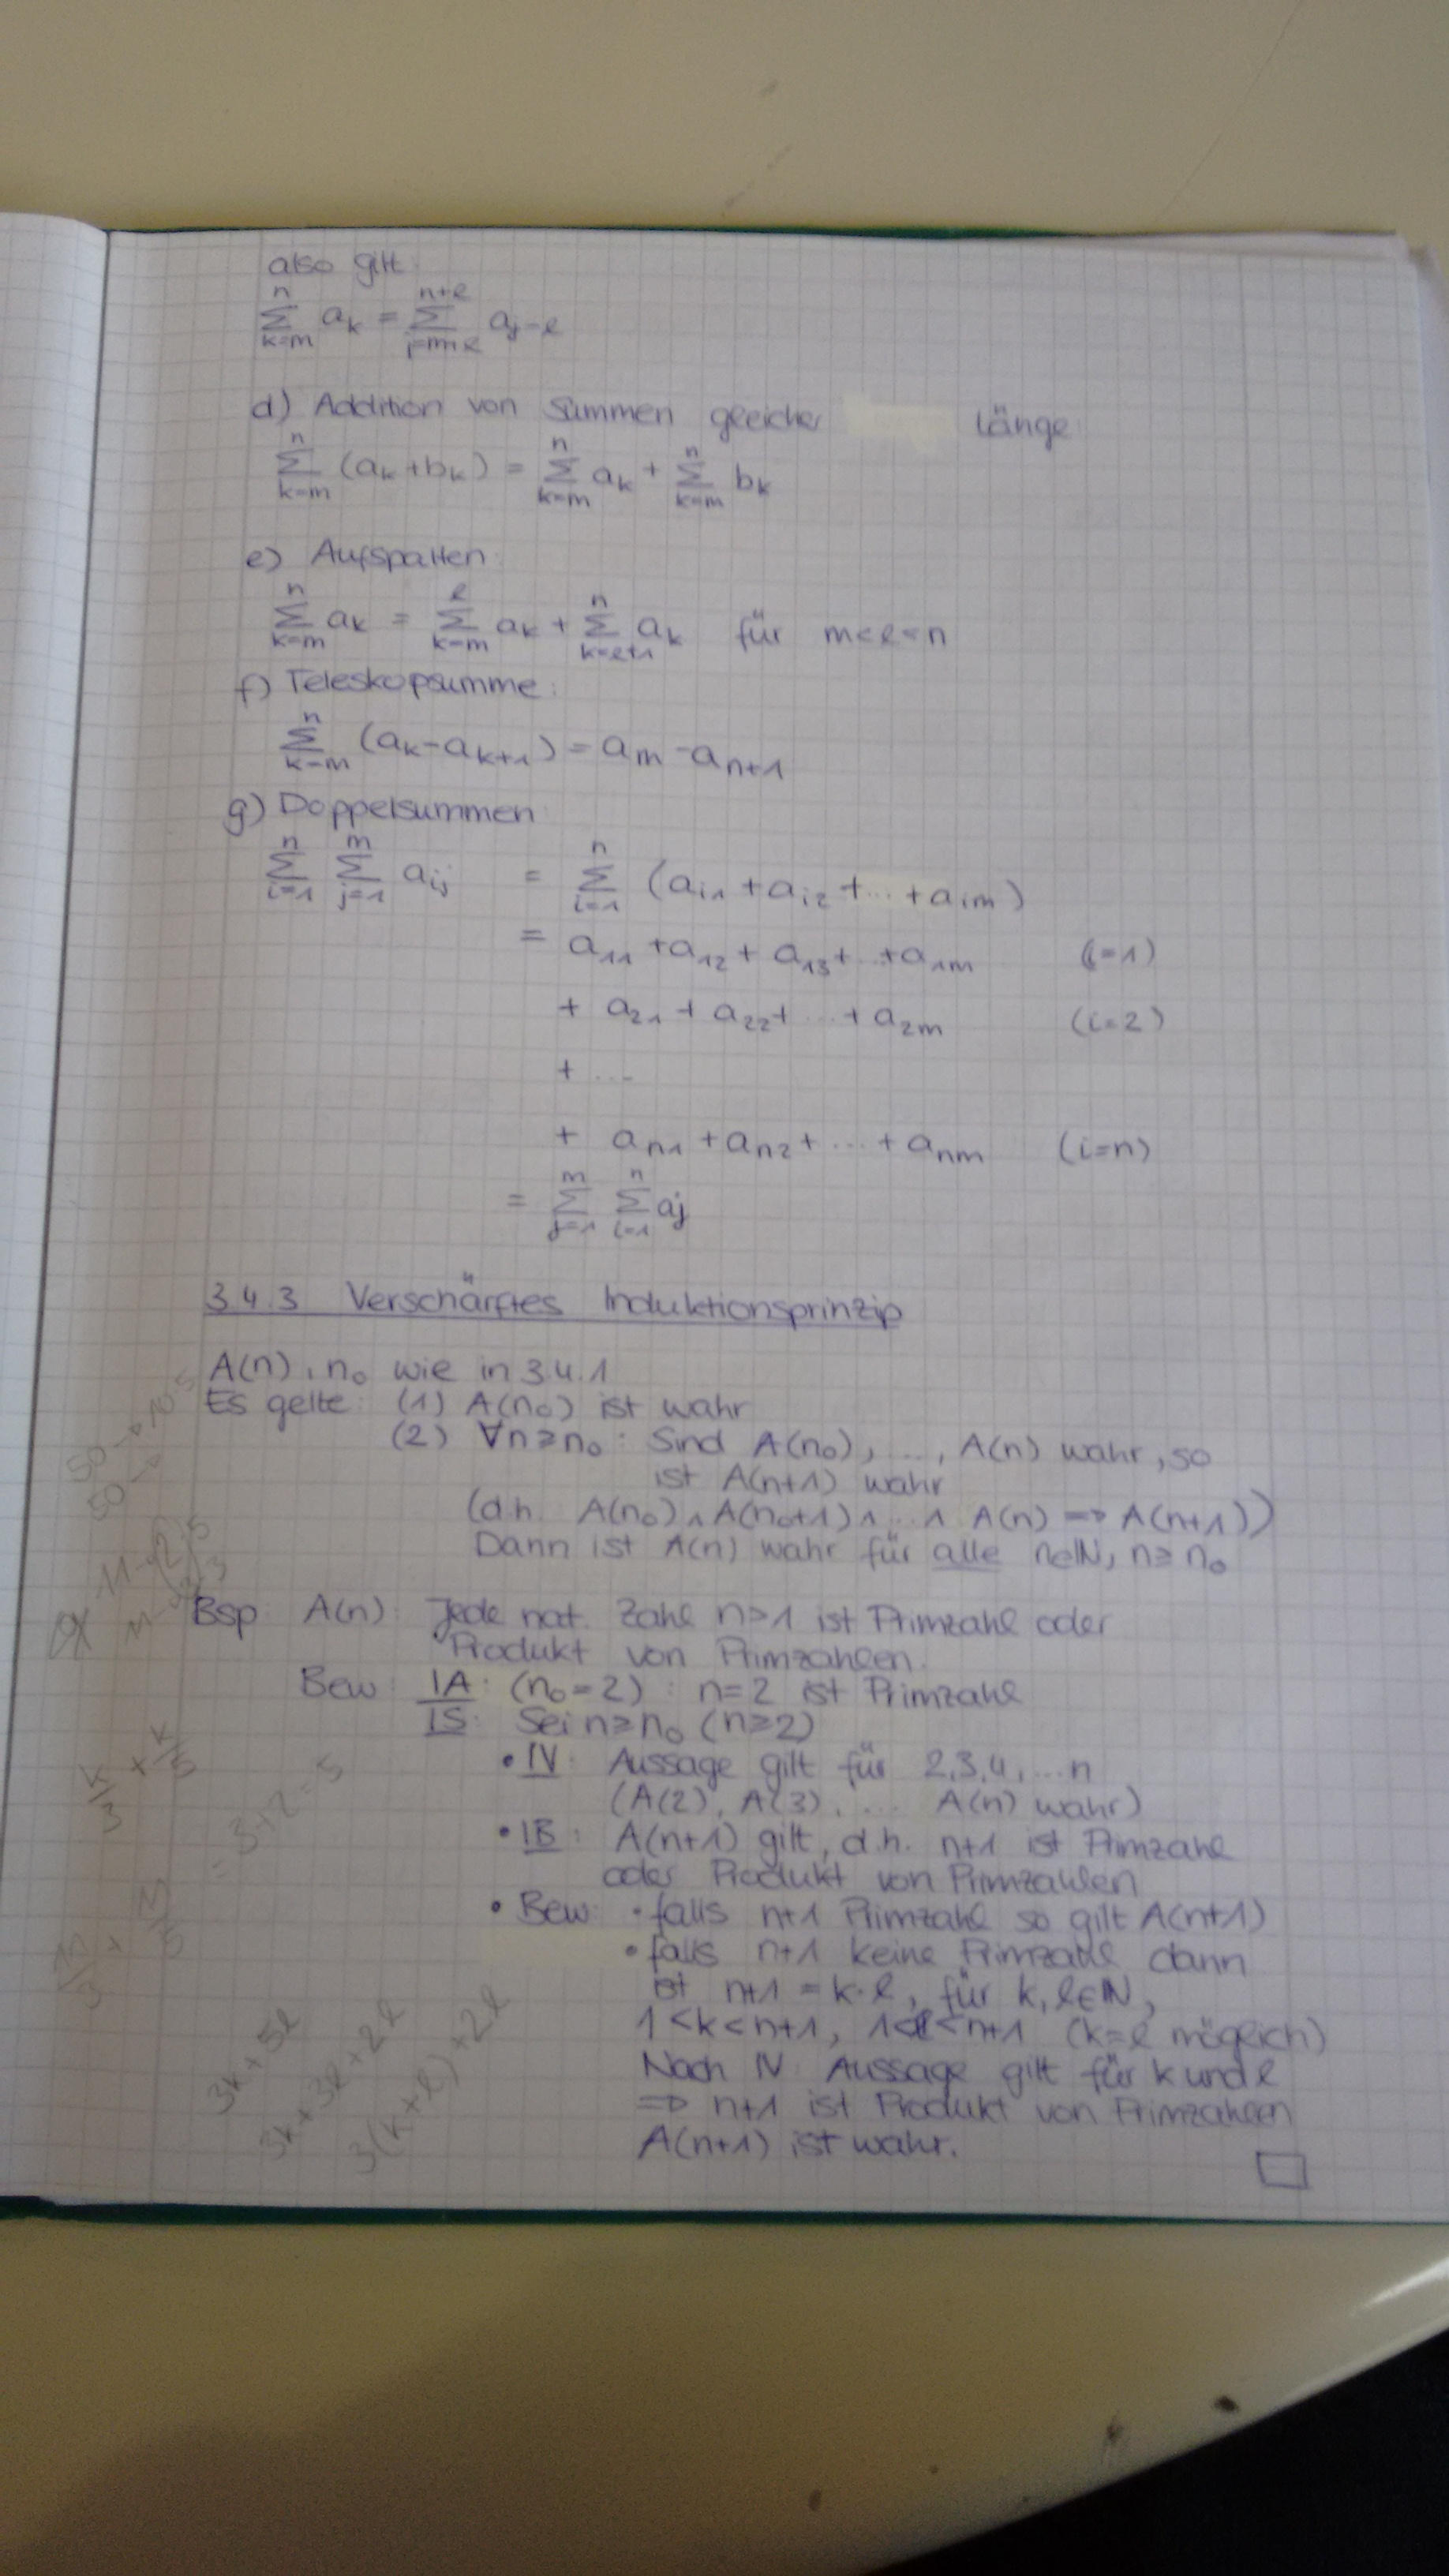 also gilt
n n+l
∑ aₖ = ∑ aⱼ₋ₗ
k=m j=m+l
d) Addition von Summen gleicher Länge:
n n n
∑ (aₖ+bₖ) = ∑ aₖ + ∑ bₖ
k=m k=m k=m
e) Aufspalten:
n l n
∑ aₖ = ∑ aₖ + ∑ aₖ für m<l<n
k=m k=m k=l+1
f) Teleskopsumme:
n
∑ (aₖ-aₖ₊₁) = aₘ-aₙ₊₁
k=m
g) Doppelsummen
n m n
∑ ∑ aᵢⱼ = ∑ (aᵢ₁ + aᵢ₂ + ... + aᵢₘ)
i=1 j=1 i=1
= a₁₁ + a₁₂ + a₁₃ + ... + a₁ₘ (i=1)
+ a₂₁ + a₂₂ + ... + a₂ₘ (i=2)
+ ...
+ aₙ₁ + aₙ₂ + ... + aₙₘ (i=n)
m n
= ∑ ∑ aⱼ
j=1 i=1
3.4.3 Verschärftes Induktionsprinzip
A(n), n₀ wie in 3.4.1
Es gelte: (1) A(n₀) ist wahr
(2) ∀n≥n₀: Sind A(n₀), ..., A(n) wahr, so
ist A(n+1) wahr
(d.h. A(n₀)∧A(n₀+1)∧...∧ A(n) => A(n+1))
Dann ist A(n) wahr für alle n∈ℕ, n≥n₀
Bsp A(n): Jede nat. Zahl n>1 ist Primzahl oder
Produkt von Primzahlen.
Bew: IA: (n₀=2): n=2 ist Primzahl
IS: Sei n≥n₀ (n≥2)
• IV: Aussage gilt für 2,3,4,...n
(A(2), A(3), ... A(n) wahr)
• IB: A(n+1) gilt, d.h. n+1 ist Primzahl
oder Produkt von Primzahlen
• Bew: • falls n+1 Primzahl so gilt A(n+1)
• falls n+1 keine Primzahl dann
ist n+1 = k·l, für k,l∈ℕ,
1<k<n+1, 1<l<n+1 (k=l möglich)
Nach IV: Aussage gilt für k und l
=> n+1 ist Produkt von Primzahlen
A(n+1) ist wahr.
k/3 + k/5
= 3+2=5
3k+5l
3k+3l+2l
3(k+l)+2l